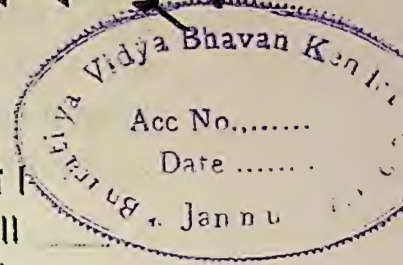 Bharatiya Vidya Bhavan Ken
Acc No.,......
Date .......
Jan n u
।
॥